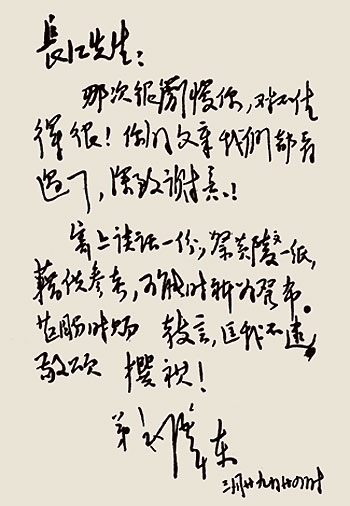 長江先生：
那次很简慢你，对不住
得很！你的文章我們都看
过了，深致谢意！
寄上谈话一份，祭黄陵文一纸，
藉供参考，可能时祈为发布。
甚盼时赐 教言，匡我不逮。
敬颂 撰祺！
弟 毛泽东
三月廿九日廿四时